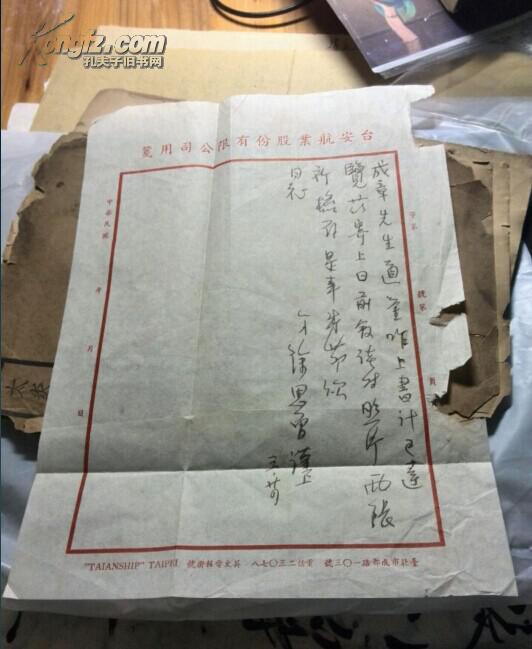 Kongfz.com
孔夫子旧书网
台安航業股份有限公司用箋
字第
號第
頁
成章先生道鉴昨上書计已達
覽茲寄上日前敘談时照片两張
祈
是幸耑此 敬頌
日祉
弟徐恩曾謹上
中華民國
年
月
日
臺北市成都路一〇三號 電話二三〇七八 英文電報掛號 "TAIANSHIP" TAIPEI